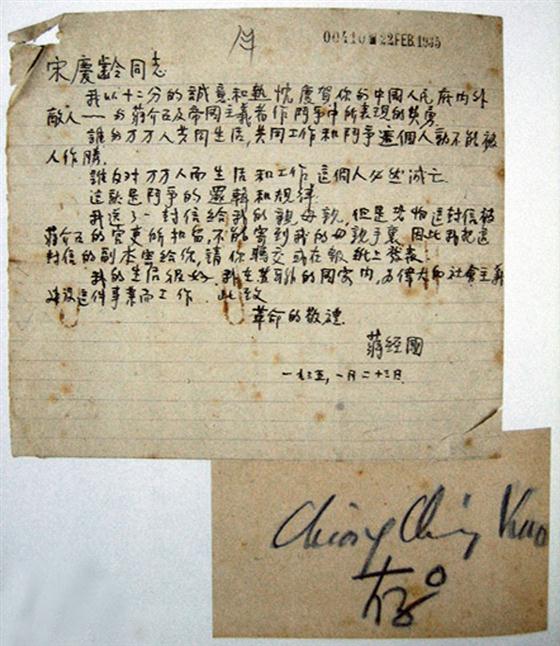 00410 22 FEB. 1935
宋慶齡同志
我以十二分的誠意和熱忱慶賀你的中國人民在内外
敵人——的蔣介石及帝國主義者作鬥爭中所表現的英勇
誰的万万人共同生活,共同工作和鬥爭這個人就不能被
人作勝.
誰反对万万人而生活和工作這個人必然滅亡
這就是鬥爭的邏輯和規律
我送了一封信給我的親母親,但是恐怕這封信被
蔣介石的官吏所扣留,不能寄到我的母親手裏 因此我把這
封信的副本寄給你,請你轉交或在報紙上發表:
我的生活很好.我在蘇聯的國家内,为偉大的社會主義
建設這件事業而工作.此致
革命的敬禮.
蔣经國
一九三五,一月二十三日.
Chiang Ching Kuo